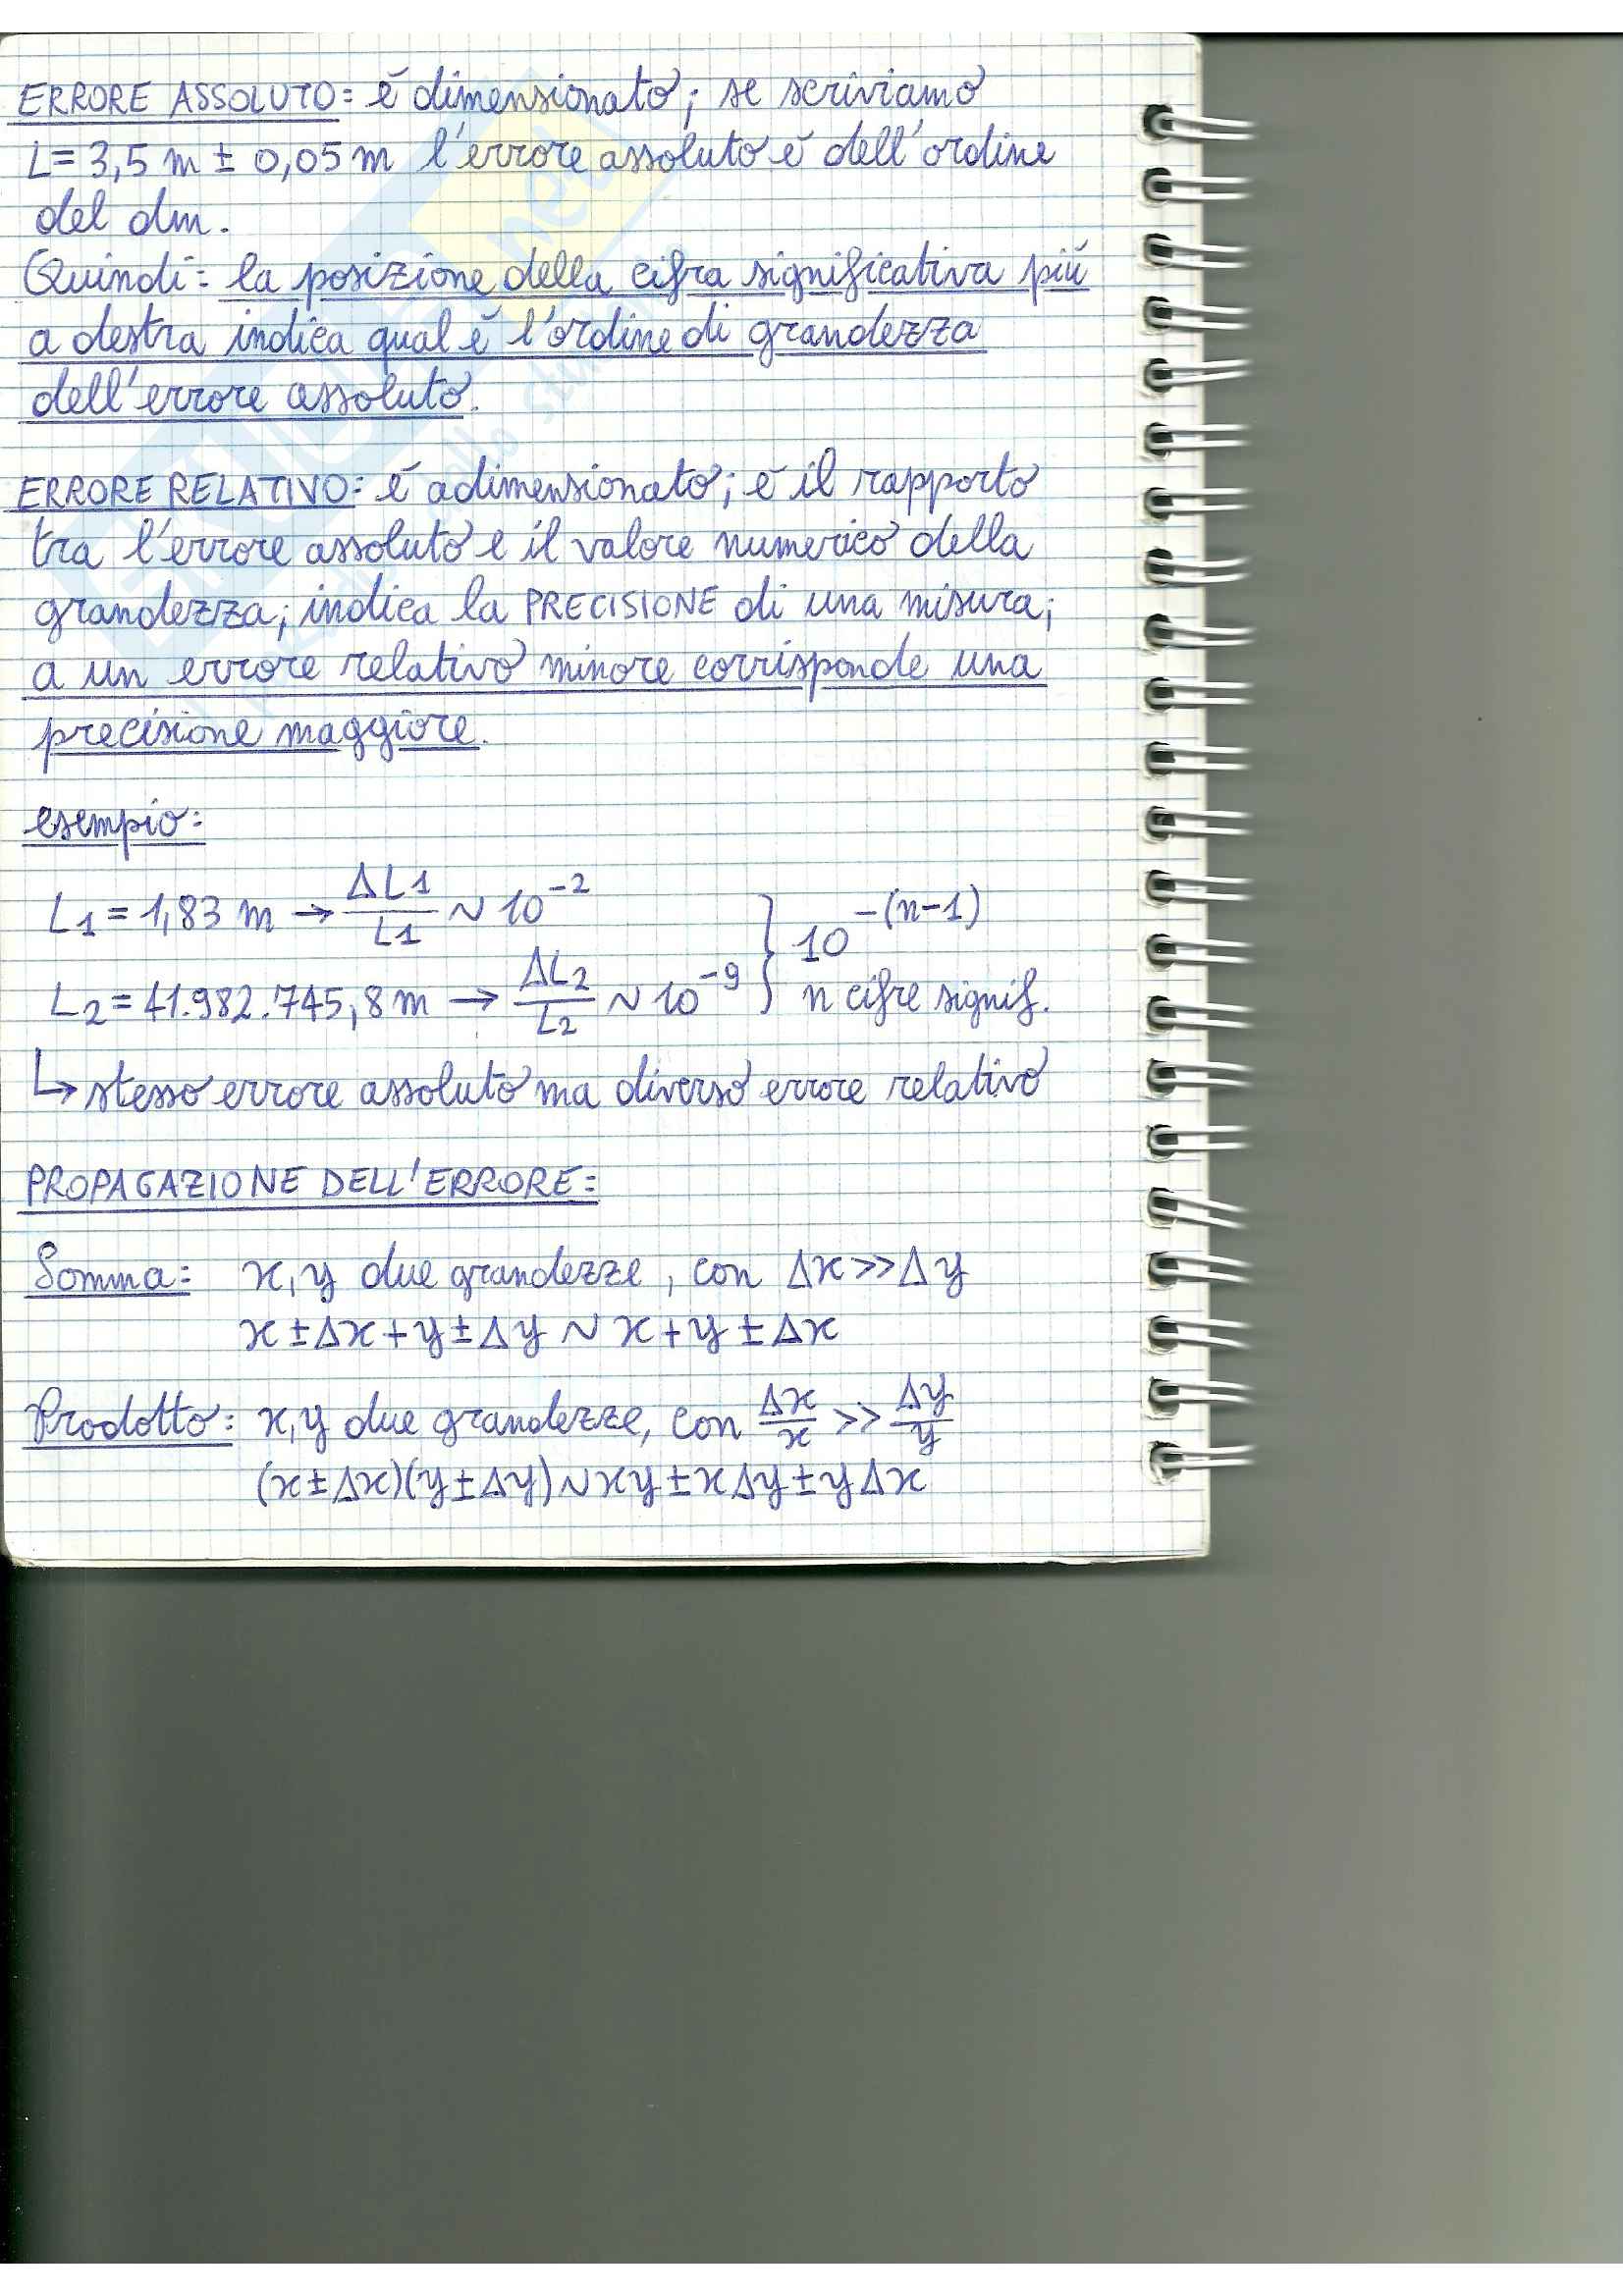 ERRORE ASSOLUTO: è dimensionato; se scriviamo
L = 3,5 m ± 0,05 m l'errore assoluto è dell'ordine
del dm.
Quindi: la posizione della cifra significativa più
a destra indica qual è l'ordine di grandezza
dell'errore assoluto.
ERRORE RELATIVO: è adimensionato; è il rapporto
tra l'errore assoluto e il valore numerico della
grandezza; indica la PRECISIONE di una misura;
a un errore relativo minore corrisponde una
precisione maggiore.
esempio:
L1 = 1,83 m → ΔL1/L1 ~ 10^-2
L2 = 41.982.745,8 m → ΔL2/L2 ~ 10^-9 } 10^-(n-1)
n cifre signif.
↳ stesso errore assoluto ma diverso errore relativo
PROPAGAZIONE DELL'ERRORE:
Somma: x, y due grandezze, con Δx >> Δy
x ± Δx + y ± Δy ~ x + y ± Δx
Prodotto: x, y due grandezze, con Δx/x >> Δy/y
(x ± Δx)(y ± Δy) ~ xy ± xΔy ± yΔx